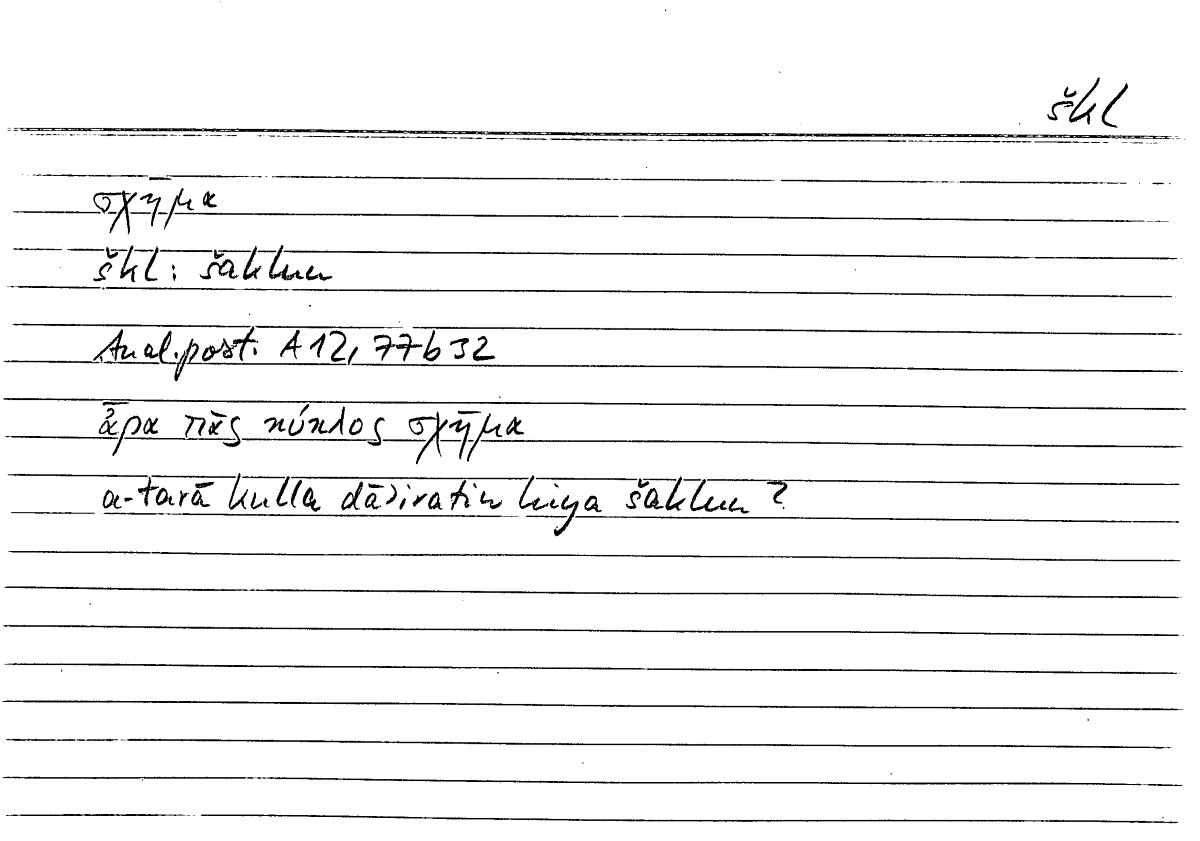 škl
σχῆμα
škl: šaklun
Anal. post. A 12, 77b32
ἆρα πᾶς κύκλος σχῆμα
a-tarā kulla dāʾiratin hiya šaklun?